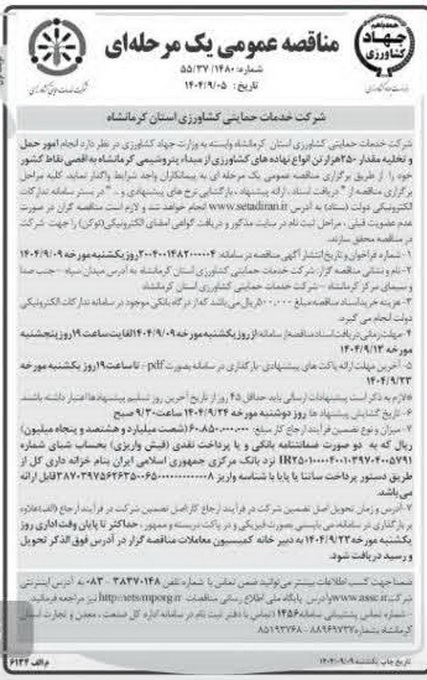 همدانیم
جهاد
کشاورزی
مناقصه عمومی یک مرحله‌ای
شماره: ۵۵/۳۷/۱۴۸۰
تاریخ: ۱۴۰۴/۹/۰۵
شرکت خدمات حمایتی کشاورزی استان کرمانشاه
شرکت خدمات حمایتی کشاورزی استان کرمانشاه وابسته به وزارت جهاد کشاورزی در نظر دارد انجام امور حمل
و تخلیه مقدار ۲۵۰هزار تن انواع نهاده های کشاورزی از مبداء پتروشیمی کرمانشاه به اقصی نقاط کشور
خود را از طریق برگزاری مناقصه عمومی یک مرحله ای به پیمانکاران واجد شرایط واگذار نماید. کلیه مراحل
برگزاری مناقصه از " دریافت اسناد، ارائه پیشنهاد، بارگشایی نرخ های پیشنهادی و .. " در بستر سامانه تدارکات
الکترونیکی دولت (ستاد) به آدرس www.setadiran.ir انجام خواهد شد و لازم است مناقصه گران در صورت
عدم عضویت قبلی، مراحل ثبت نام در سایت مذکور و دریافت گواهی امضای الکترونیکی(توکن) را جهت شرکت
در مناقصه محقق سازند.
۱- شماره فراخوان و تاریخ انتشار آگهی مناقصه در سامانه: ۲۰۰۴۰۰۱۴۸۲۰۰۰۰۰۴ روز یکشنبه مورخه ۱۴۰۴/۹/۰۹
۲- نام و نشانی مناقصه گزار: شرکت خدمات حمایتی کشاورزی استان کرمانشاه به آدرس میدان سپاه - جنب صدا
و سیمای مرکز کرمانشاه – شرکت خدمات حمایتی کشاورزی استان کرمانشاه
۳- هزینه خرید اسناد مناقصه مبلغ ۵۰۰,۰۰۰ ریال می باشد که از درگاه بانکی موجود در سامانه تدارکات الکترونیکی
دولت انجام می گیرد.
۴- مهلت زمانی دریافت اسناد مناقصه از سامانه از روز یکشنبه مورخه ۱۴۰۴/۹/۰۹ لغایت ساعت ۱۹ روز پنجشنبه
مورخه ۱۴۰۴/۹/۱۳
۵- آخرین مهلت ارائه پاکت های پیشنهادی- بارگذاری در سامانه بصورت pdf- تا ساعت ۱۹ روز یکشنبه مورخه
۱۴۰۴/۹/۲۳
لازم به ذکر است پیشنهادات ارسالی باید حداقل ۴۵ روز از تاریخ آخرین روز تسلیم پیشنهادها اعتبار داشته باشند.
۶- تاریخ گشایش پیشنهاد ها روز دوشنبه مورخ ۱۴۰۴/۹/۲۴ ساعت ۹/۳۰ صبح
۷- میزان و نوع تضمین فرآیند ارجاع کار مبلغ: ۶۰.۸۵۰.۰۰۰.۰۰۰ (شصت میلیارد و هشتصد و پنجاه میلیون)
ریال که به دو صورت ضمانتنامه بانکی و یا پرداخت نقدی (فیش واریزی) بحساب شبای شماره
نزد بانک مرکزی جمهوری اسلامی ایران بنام خزانه داری کل از
طریق دستور پرداخت ساتنا یا پایا با شناسه واریز قابل ارائه
می باشد.
۷- آدرس و زمان تحویل اصل تضمین شرکت در فرآیند ارجاع کار: اصل تضمین شرکت در فرآیند ارجاع (الف) علاوه
بر بارگذاری در سامانه، می بایستی بصورت فیزیکی و در پاکت دربسته و ممهور، حداکثر تا پایان وقت اداری روز
یکشنبه مورخه ۱۴۰۴/۹/۲۳ به دبیر خانه کمیسیون معاملات مناقصه گزار در آدرس فوق الذکر تحویل
و رسید دریافت شود.
ضمنا جهت کسب اطلاعات بیشتر می توانید ضمن تماس با شماره تلفن ۳۸۳۷۰۱۴۸ - ۰۸۳ به آدرس اینترنتی
شرکت www.assc.ir و آدرس پایگاه ملی اطلاع رسانی مناقصات http://iets/mporg.ir نیز مراجعه فرمائید.
- شماره تماس پشتیبانی سامانه ۱۴۵۶ (تماس با دفتر ثبت نام در سامانه اداره کل صنعت، معدن و تجارت استان
کرمانشاه بشماره ۸۸۹۶۹۷۳۷ - ۸۵۱۹۳۷۶۸
تاریخ چاپ: یکشنبه ۱۴۰۴/۰۹/۰۹
م الف ۶۱۳۴